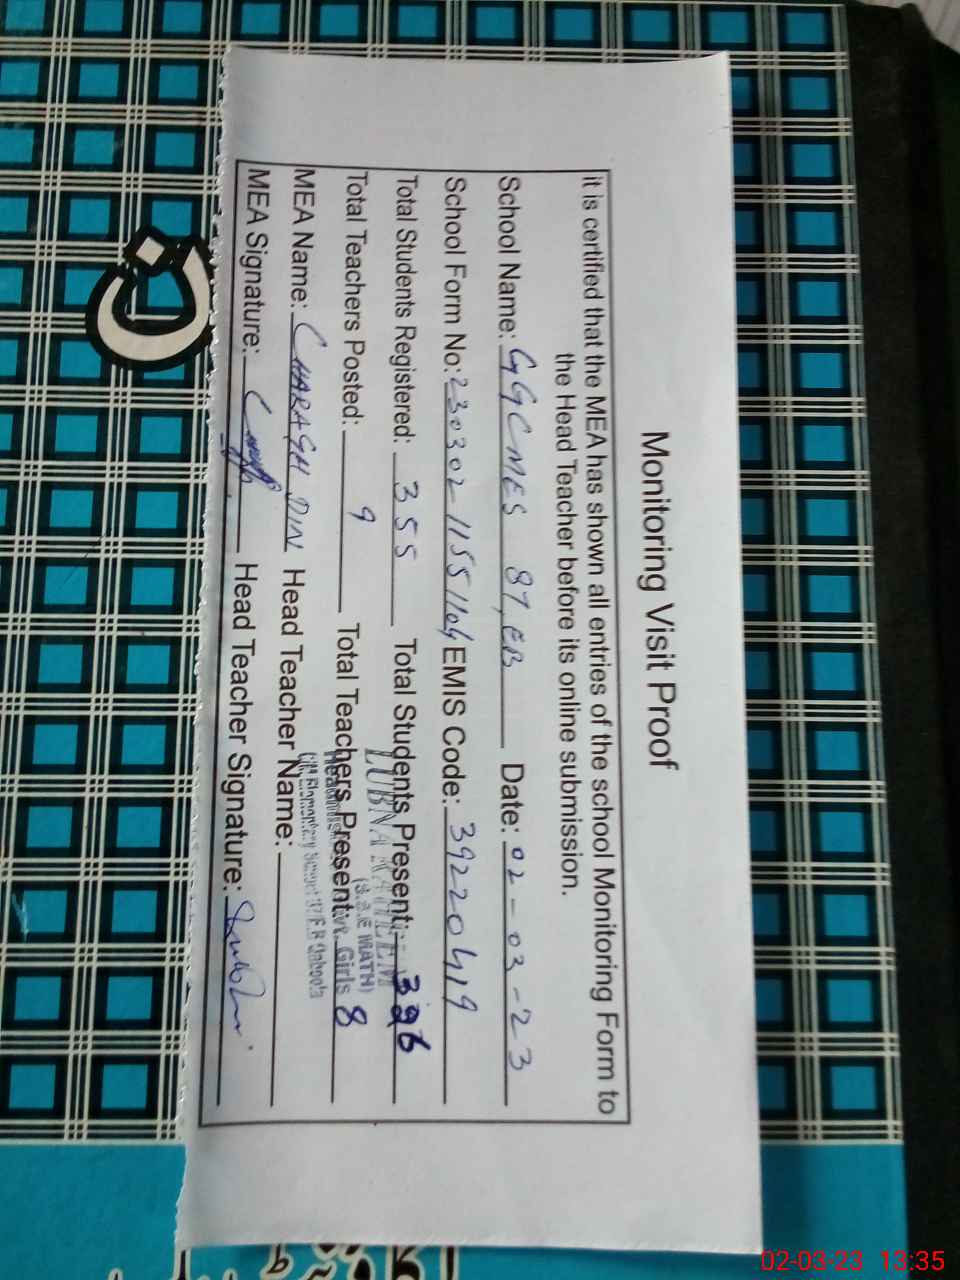 Monitoring Visit Proof
it is certified that the MEA has shown all entries of the school Monitoring Form to
the Head Teacher before its online submission.
School Name: GGCMES 87, EB Date: 02-03-23
School Form No: 230302 11551104 EMIS Code: 39220419
Total Students Registered: 355 Total Students Present: 326
LUBNA
(S.S.E MATH)
Total Teachers Posted: 9 Total Teachers Present: 8
Girls
Elementary School
MEA Name: CHARAGH DIN Head Teacher Name:
MEA Signature: Head Teacher Signature:
ن
02-03-23 13:35